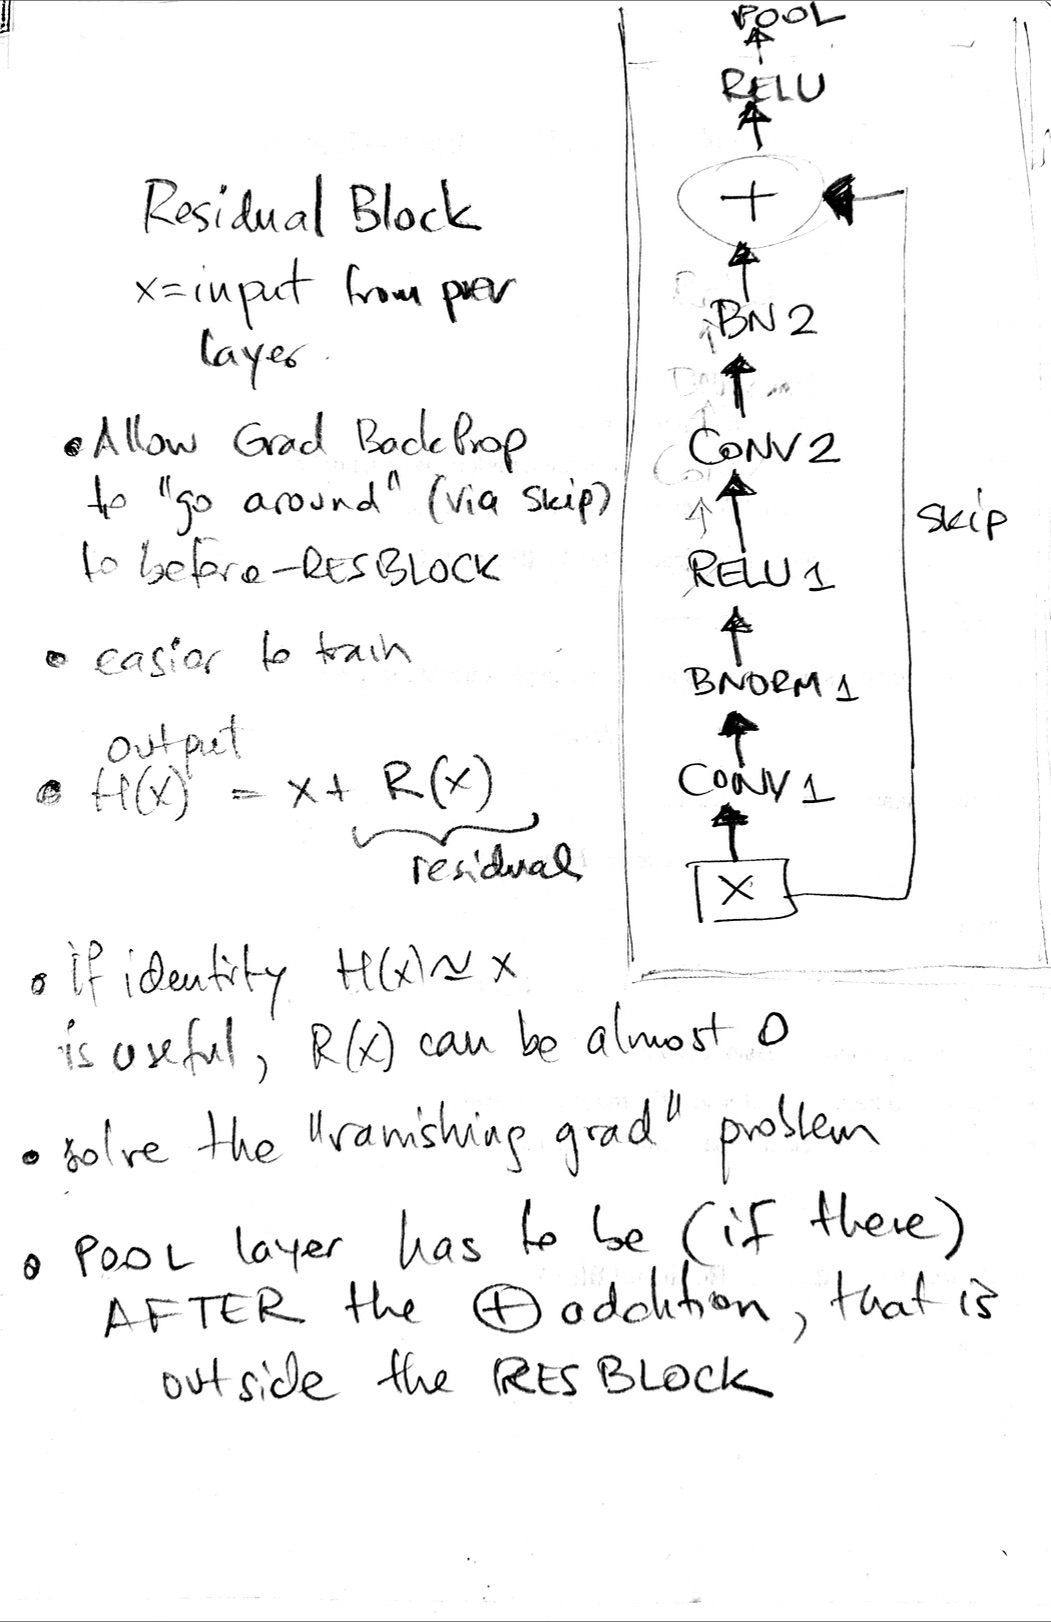 POOL
RELU
+
BN2
CONV2
RELU 1
BNORM 1
CONV 1
X
skip
Residual Block
x=input from prev
layer.
• Allow Grad BackProp
to "go around" (via skip)
to before-RESBLOCK
• easier to train
output
• H(x) = x + R(x)
residual
• if identity H(x) ≃ x
is useful, R(x) can be almost 0
• solve the "vanishing grad" problem
• POOL layer has to be (if there)
AFTER the ⊕ addition, that is
outside the RESBLOCK